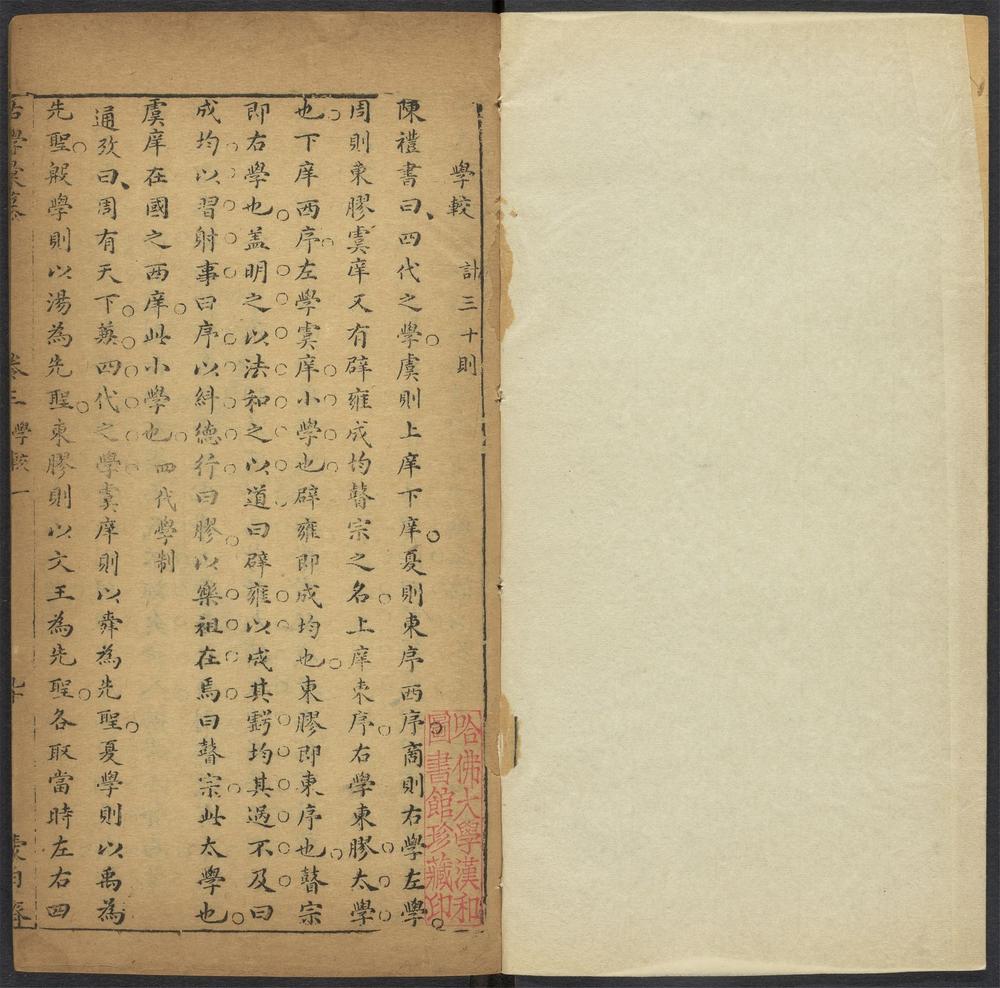 學較　計三十則
陳禮書曰四代之學虞則上庠下庠夏則東序西序商則右學左學
周則東膠虞庠又有辟雍成均瞽宗之名上庠東序右學東膠太學
也下庠西序左學虞庠小學也辟雍即成均也東膠即東序也瞽宗
即右學也盖明之以法和之以道曰辟雍以成其虧均其過不及曰
成均以習射事曰序以糾德行曰膠以樂祖在焉曰瞽宗此太學也
虞庠在國之西庠此小學也　四代學制
通攷曰周有天下兼四代之學虞庠則以舜為先聖夏學則以禹為
先聖殷學則以湯為先聖東膠則以文王為先聖各取當時左右四
卷三 學較 一
哈佛大學漢和
圖書館珍藏印